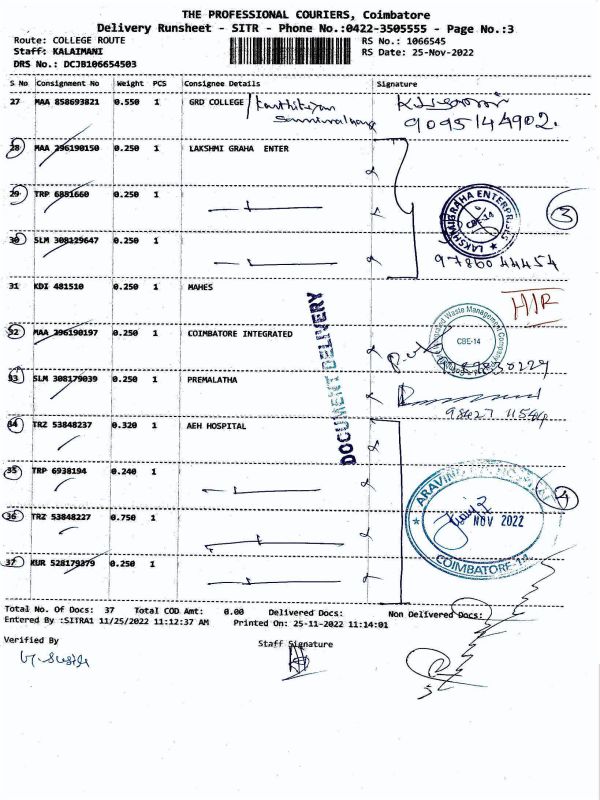 THE PROFESSIONAL COURIERS, Coimbatore
Delivery Runsheet - SITR - Phone No.:0422-3505555 - Page No.:3
Route: COLLEGE ROUTE RS No.: 1066545
Staff: KALAIMANI RS Date: 25-Nov-2022
DRS No.: DCJB106654503
S No Consignment No Weight PCS Consignee Details Signature
27 MAA 858693821 0.550 1 GRD COLLEGE / Karthikeyan
9095144902.
28 MAA 296190150 0.250 1 LAKSHMI GRAHA ENTER
29 TRP 6881660 0.250 1
LAKSHMIGRAHA ENTERPRISES CBE-14
3
30 SLM 308129647 0.250 1
9786044454
31 KDI 481510 0.250 1 MAHES
DOCUMENT DELIVERY
32 MAA 296190197 0.250 1 COIMBATORE INTEGRATED
CBE-14
33 SLM 308179039 0.250 1 PREMALATHA
34 TRZ 53848237 0.320 1 AEH HOSPITAL
35 TRP 6938194 0.240 1
4
36 TRZ 53848227 0.750 1
NOV 2022
COIMBATORE-14
37 KUR 528179379 0.250 1
Total No. Of Docs: 37 Total COD Amt: 0.00 Delivered Docs: Non Delivered Docs:
Entered By :SITRA1 11/25/2022 11:12:37 AM Printed On: 25-11-2022 11:14:01
Verified By Staff Signature